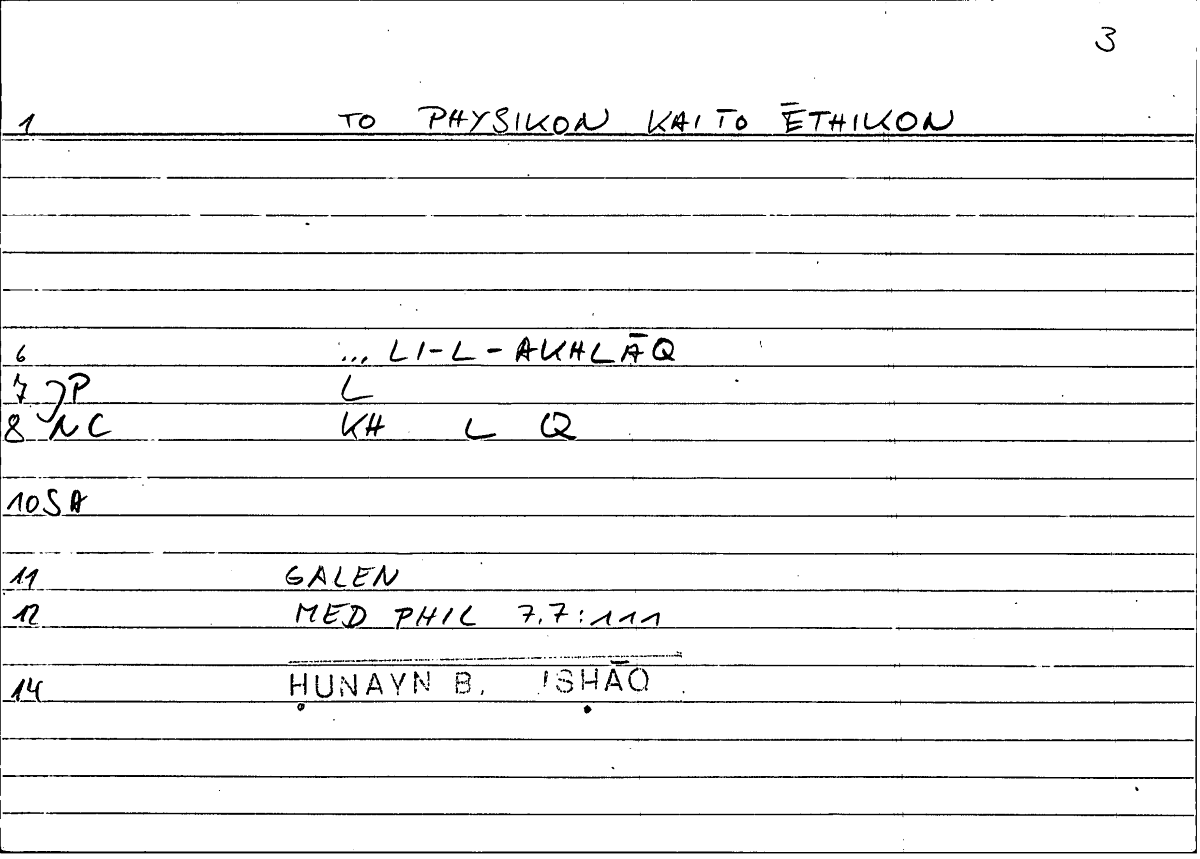 3
1 TO PHYSIKON KAI TO ĒTHIKON
6 ... LI-L-AKHLĀQ
7 P L
8 NC KH L Q
10 SA
11 GALEN
12 MED PHIL 7.7:111
14 ḤUNAYN B. ISḤĀQ